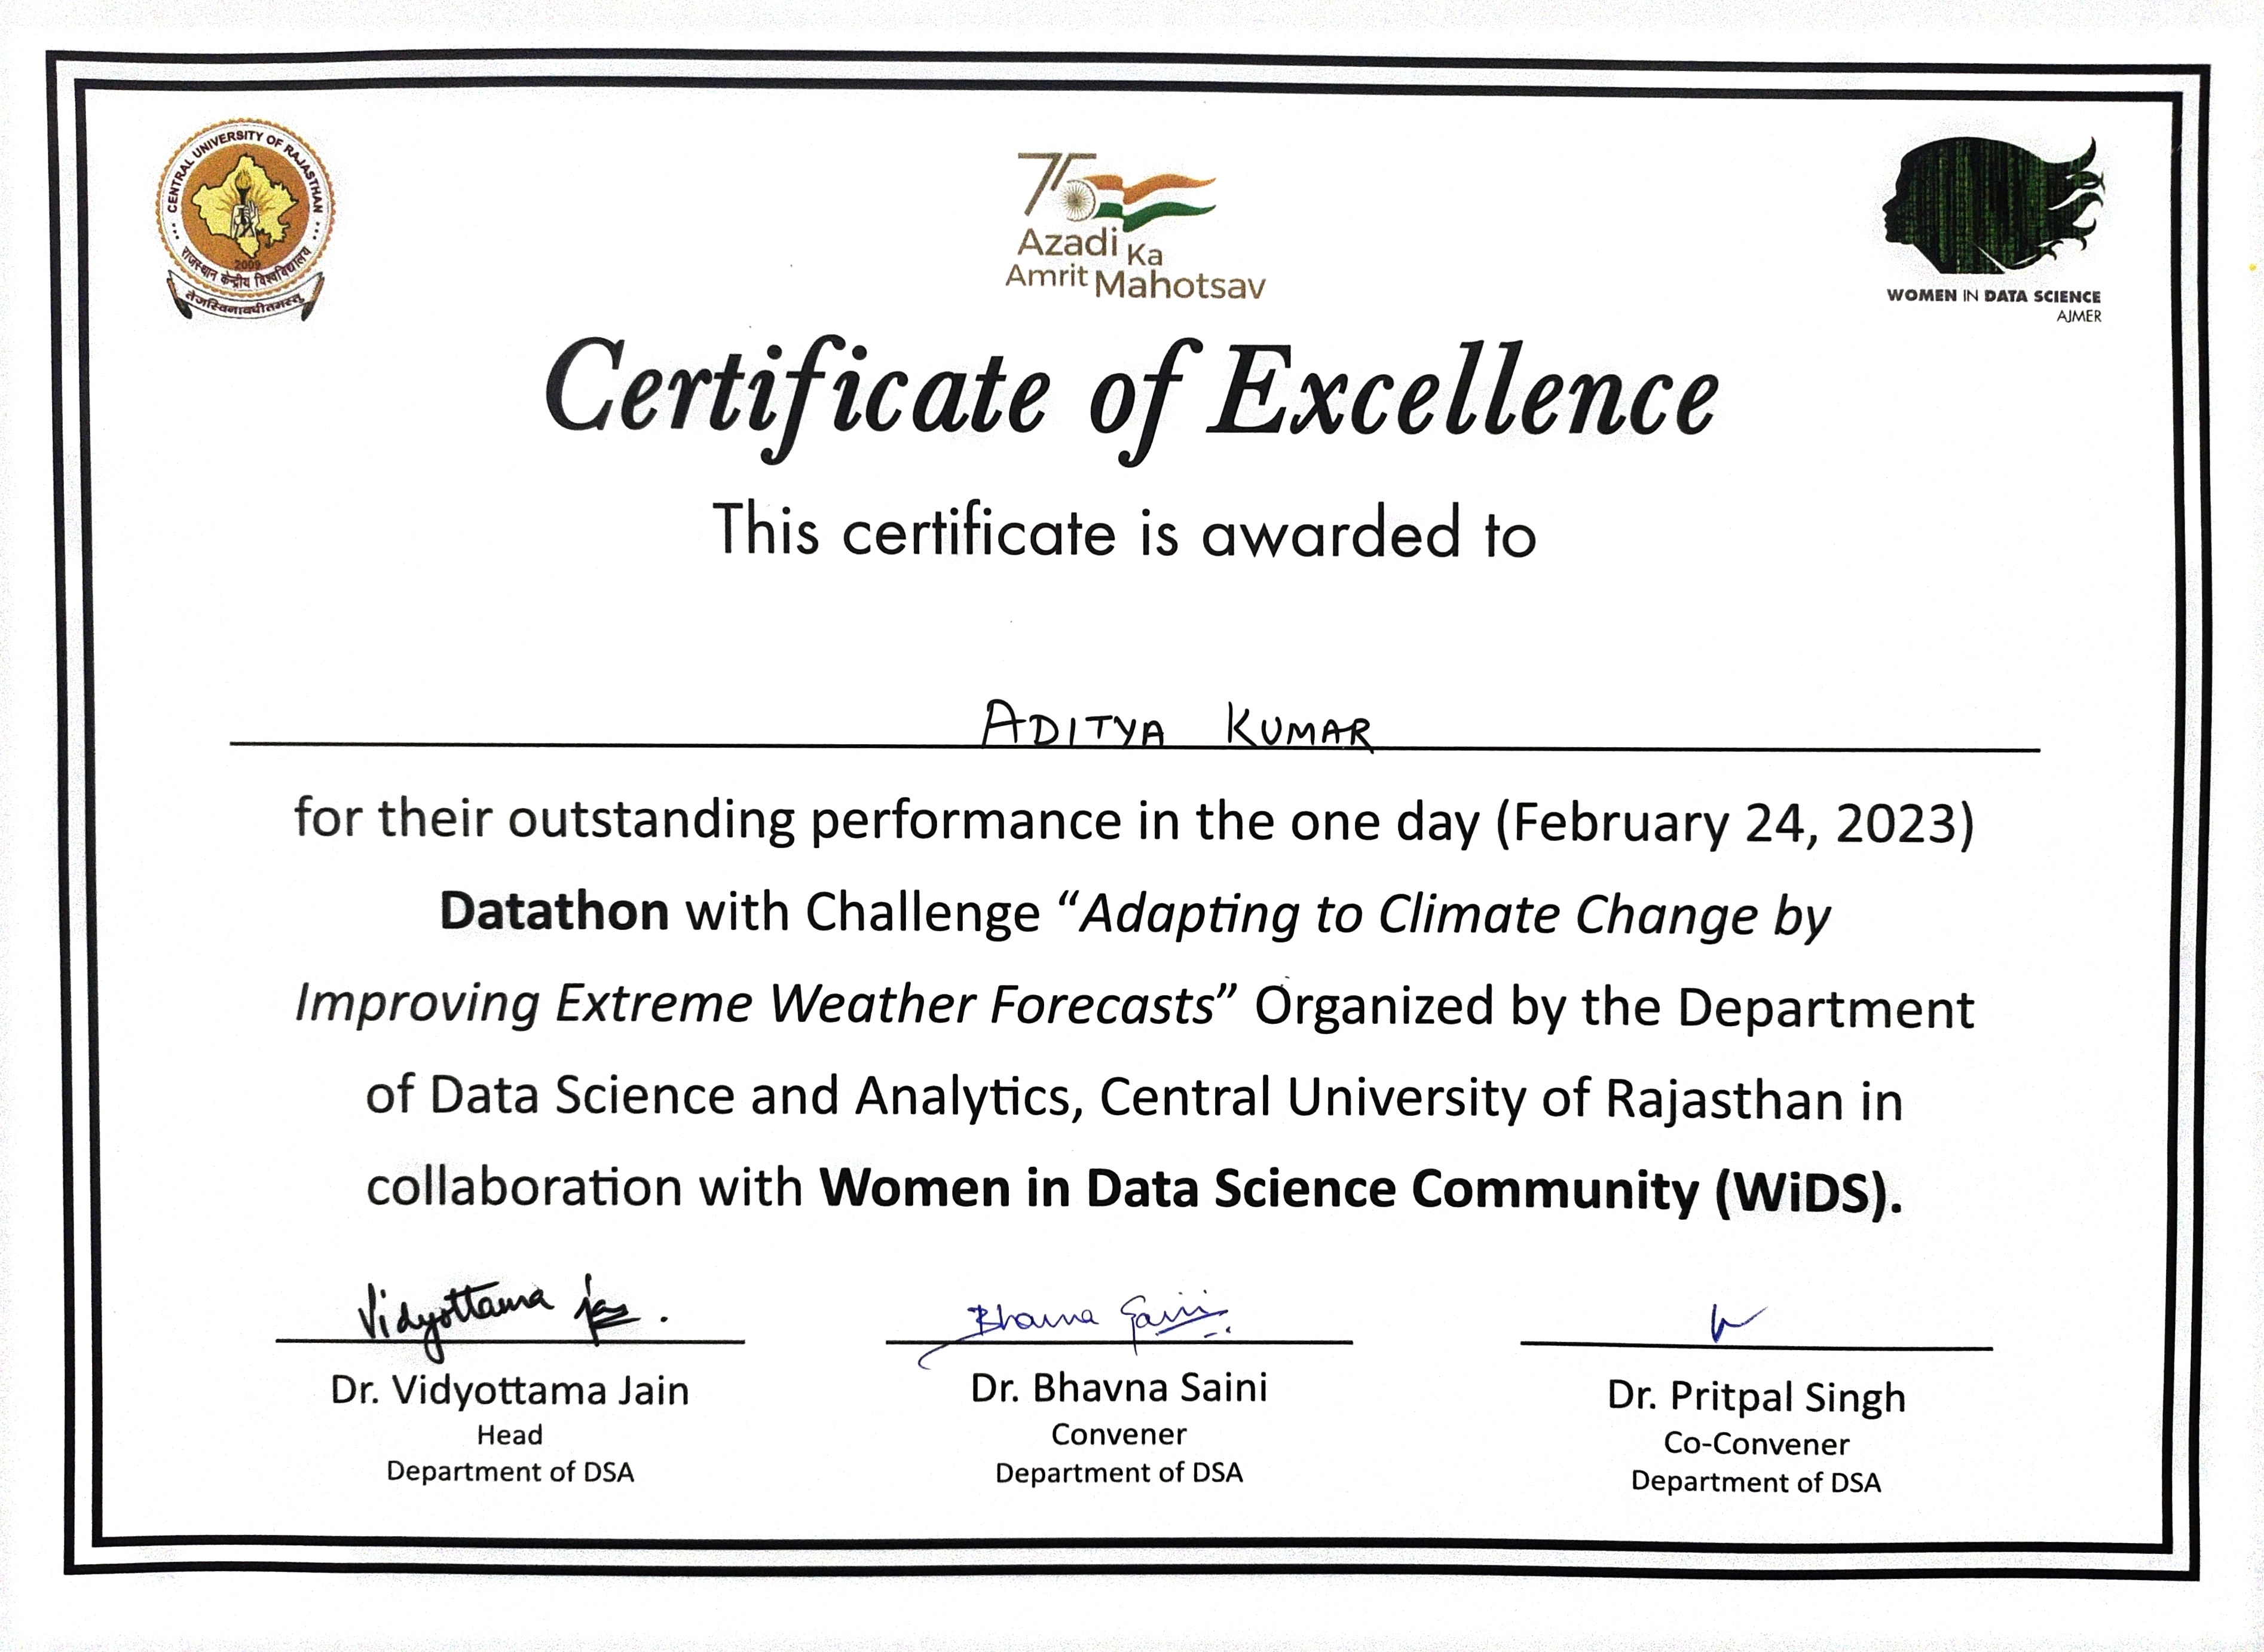 CENTRAL UNIVERSITY OF RAJASTHAN
2009
राजस्थान केन्द्रीय विश्वविद्यालय
तेजस्विनावधीतमस्तु
75
Azadi Ka
Amrit Mahotsav
WOMEN IN DATA SCIENCE
AJMER
Certificate of Excellence
This certificate is awarded to
ADITYA KUMAR
for their outstanding performance in the one day (February 24, 2023)
Datathon with Challenge “Adapting to Climate Change by
Improving Extreme Weather Forecasts” Organized by the Department
of Data Science and Analytics, Central University of Rajasthan in
collaboration with Women in Data Science Community (WiDS).
Vidyottama Bhavna Saini
Dr. Vidyottama Jain Dr. Bhavna Saini Dr. Pritpal Singh
Head Convener Co-Convener
Department of DSA Department of DSA Department of DSA